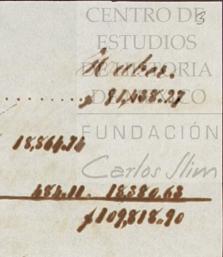 CENTRO DE
ESTUDIOS
DE HISTORIA
Haber.
DE MÉXICO
$ 91,438.27
FUNDACIÓN
18,864.74
Carlos Slim
484.11. 18,380.63
$109,818.90